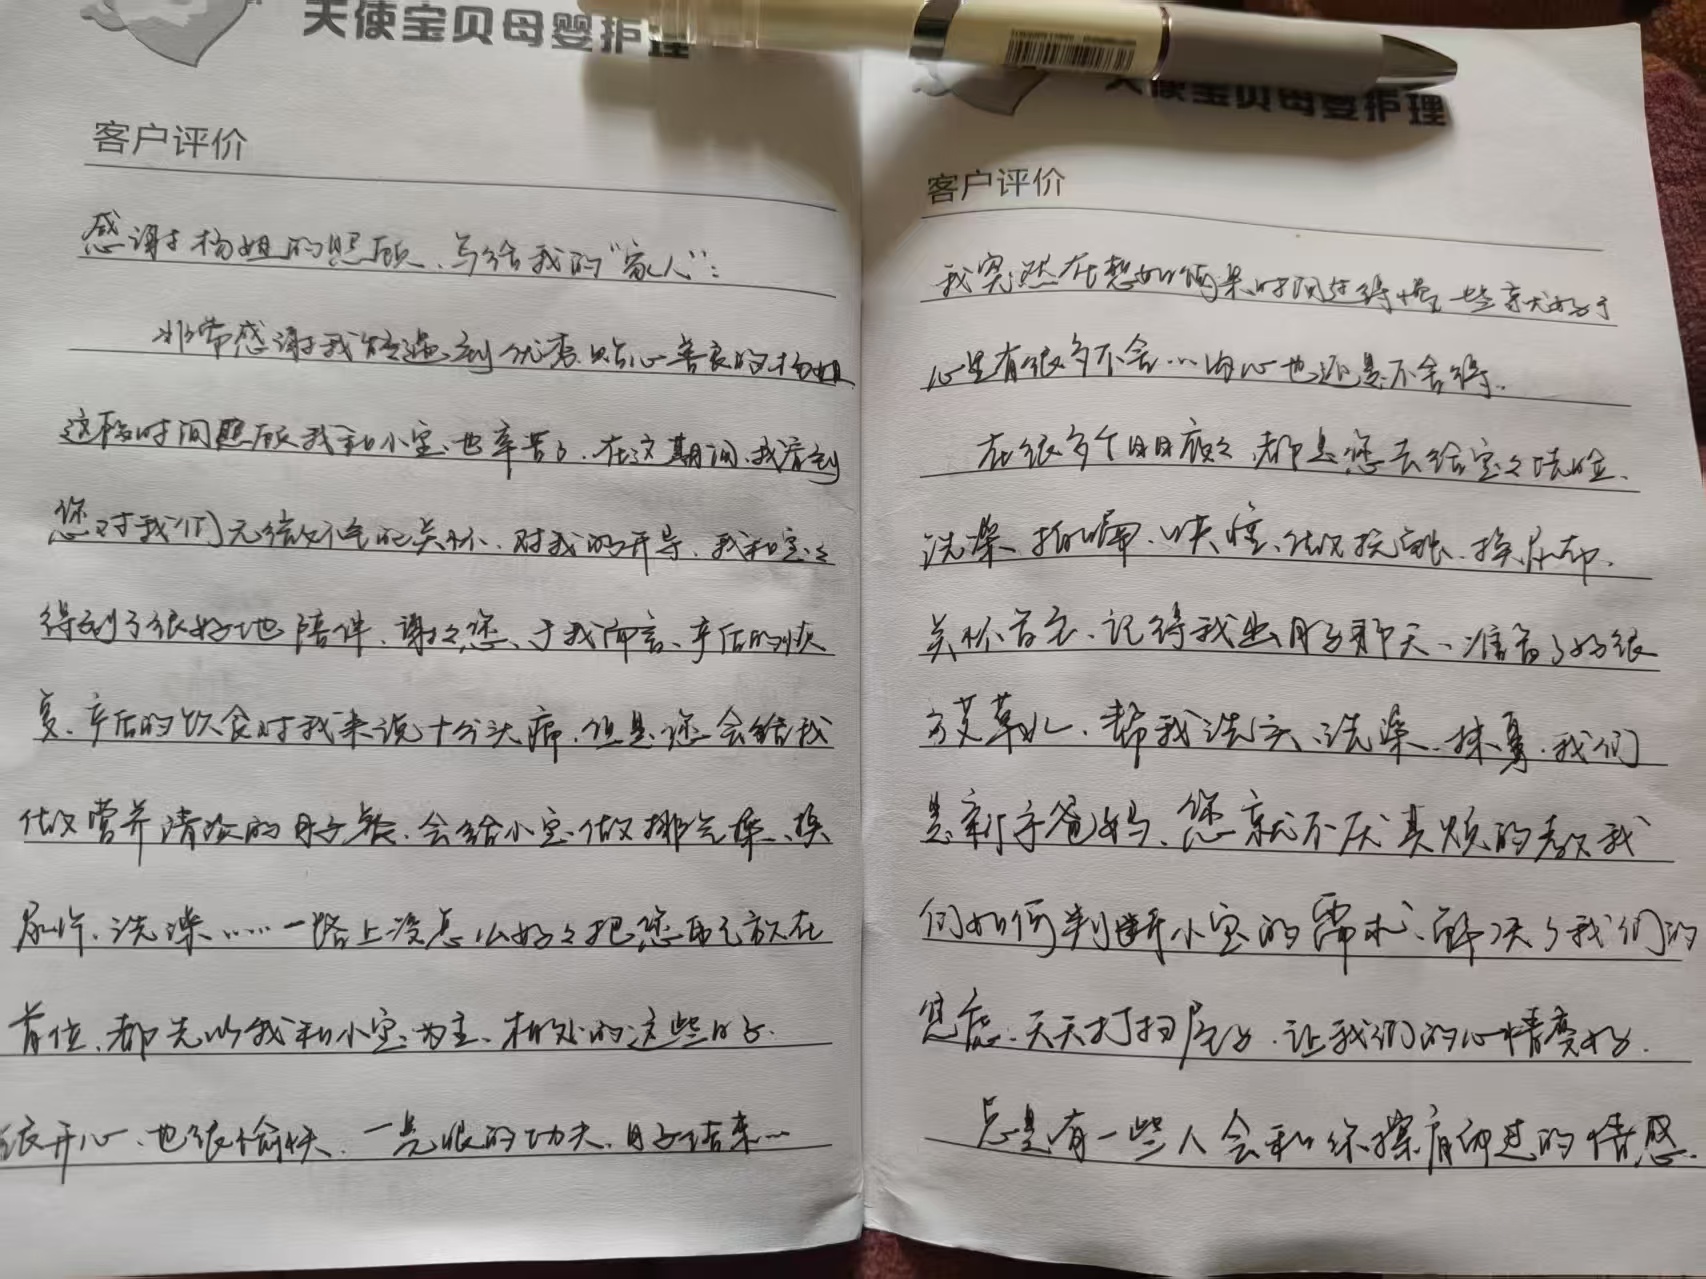 天使宝贝母婴护理
客户评价
感谢杨姐的照顾、写给我的“家人”：
非常感谢我能遇到优秀贴心善良的杨姐
这段时间照顾我和小宝也辛苦了、在这期间、我看到
您对我们无微不至的关怀、对我的开导、我和宝々
得到了很好地陪伴、谢々您、于我而言、产后的恢
复、产后的饮食对我来说十分头痛、但是您会给我
做营养清淡的月子餐、会给小宝做排气操、换
尿片、洗澡……一路上没怎么好々把您自己放在
首位、都先以我和小宝为主、相处的这些日子.
很开心、也很愉快、一晃眼的功夫、月子结束…
天使宝贝母婴护理
客户评价
我突然在想如何果时间过得慢一些就好了
心里有很多不舍…内心也还是不舍得.
在很多个日日夜々、都是您去给宝々洗脸、
洗澡、拍嗝、哄睡、做抚触、换尿布.
关怀备至、记得我出月子那天、准备了好很
多艾草水、帮我洗头、洗澡、抹身、我们
是新手爸妈、您就不厌其烦的教我
们如何判断小宝的需求、解决了我们的
焦虑、天天打扫屋子、让我们的心情变好.
总是有一些人会和你擦肩而过的情感.